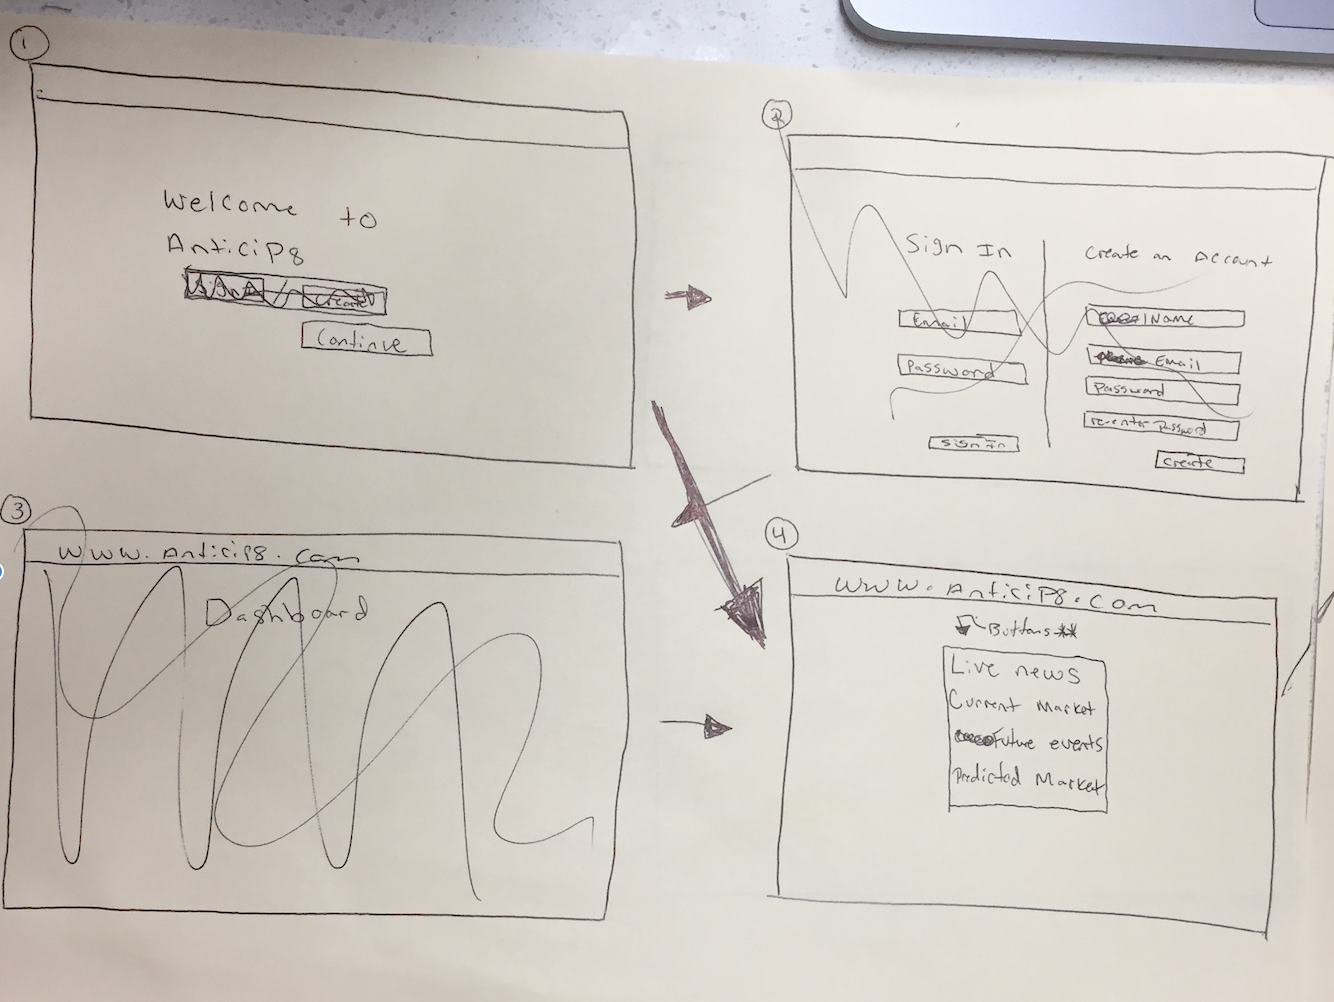 1
Welcome to
AnticiP8
Create
Continue
2
Sign In
Create an Account
Email
Password
Sign in
Name
Email
Password
re-enter Password
Create
3
www.Anticip8.com
Dashboard
4
www.AnticiP8.com
Buttons**
Live news
Current Market
Future events
Predicted Market